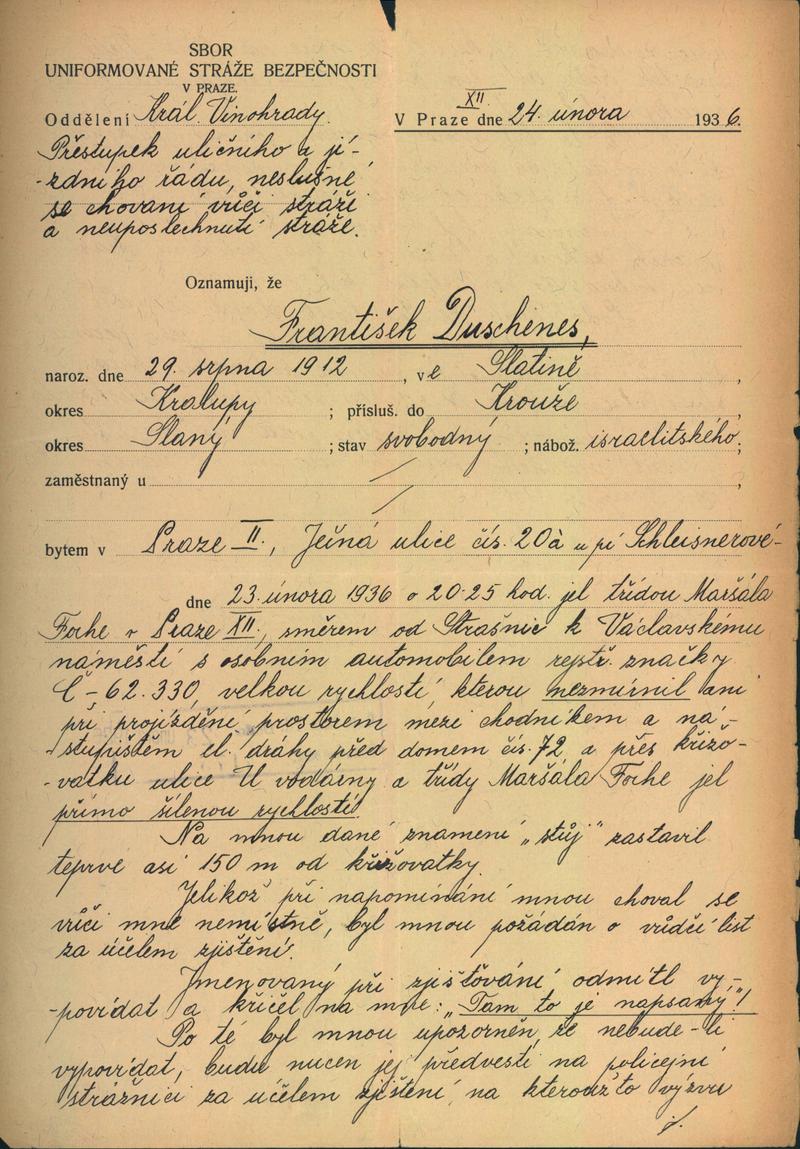 SBOR
UNIFORMOVANÉ STRÁŽE BEZPEČNOSTI
V PRAZE.
Oddělení Král. Vinohrady.
V Praze XII dne 24. února 1936.
Přestupek uličního a jí-
-zdního řádu, neslušné
se chovaní vůči stráži
a neuposlechnutí stráže.
Oznamuji, že
František Duschenes,
naroz. dne 29. srpna 1912, ve Slatině,
okres Kralupy; přísluš. do Krouže,
okres Slaný; stav svobodný; nábož. israelitského;
zaměstnaný u ,
bytem v Praze II., Ječná ulice čís. 20a u pí Schleisnerové-
dne 23. února 1936 o 20.25 hod. jel třídou Maršála
Foche v Praze XII., směrem od Strašnic k Václavskému
náměstí s osobním automobilem rejstř. značky
Č-62.330, velkou rychlostí, kterou nezmírnil ani
při projíždění prostorem mezi chodníkem a ná-
-stupištěm el. dráhy před domem čís. 72 a přes křižo-
-vatku ulice U vodárny a třídy Maršála Foche jel
přímo šílenou rychlostí!
Na mnou dané znamení „stůj" zastavil
teprve asi 150 m od křižovatky.
Jelikož při napomínání mnou choval se
vůči mně nemístně, byl mnou požádán o vůdčí list
za účelem zjištění.
Jmenovaný při zjišťování odmítl vy-
-povídat a křičel na mne: „Tam to je napsaný"!
Po té byl mnou upozorněn, že nebude-li
vypovídat, budu nucen jej předvésti na policejní
strážnici za účelem zjištění, na kteroužto výzvu
./.